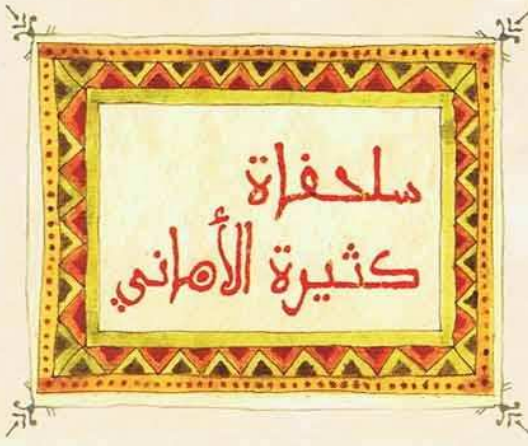 سلحفاة
كثيرة الأماني